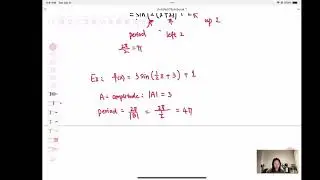 period left 2 up 2
2π/2 = π
Ex: f(x) = 3 sin(½x + 3) + 1
A = amplitude : |A| = 3
period = 2π/|B| = 2π/½ = 4π